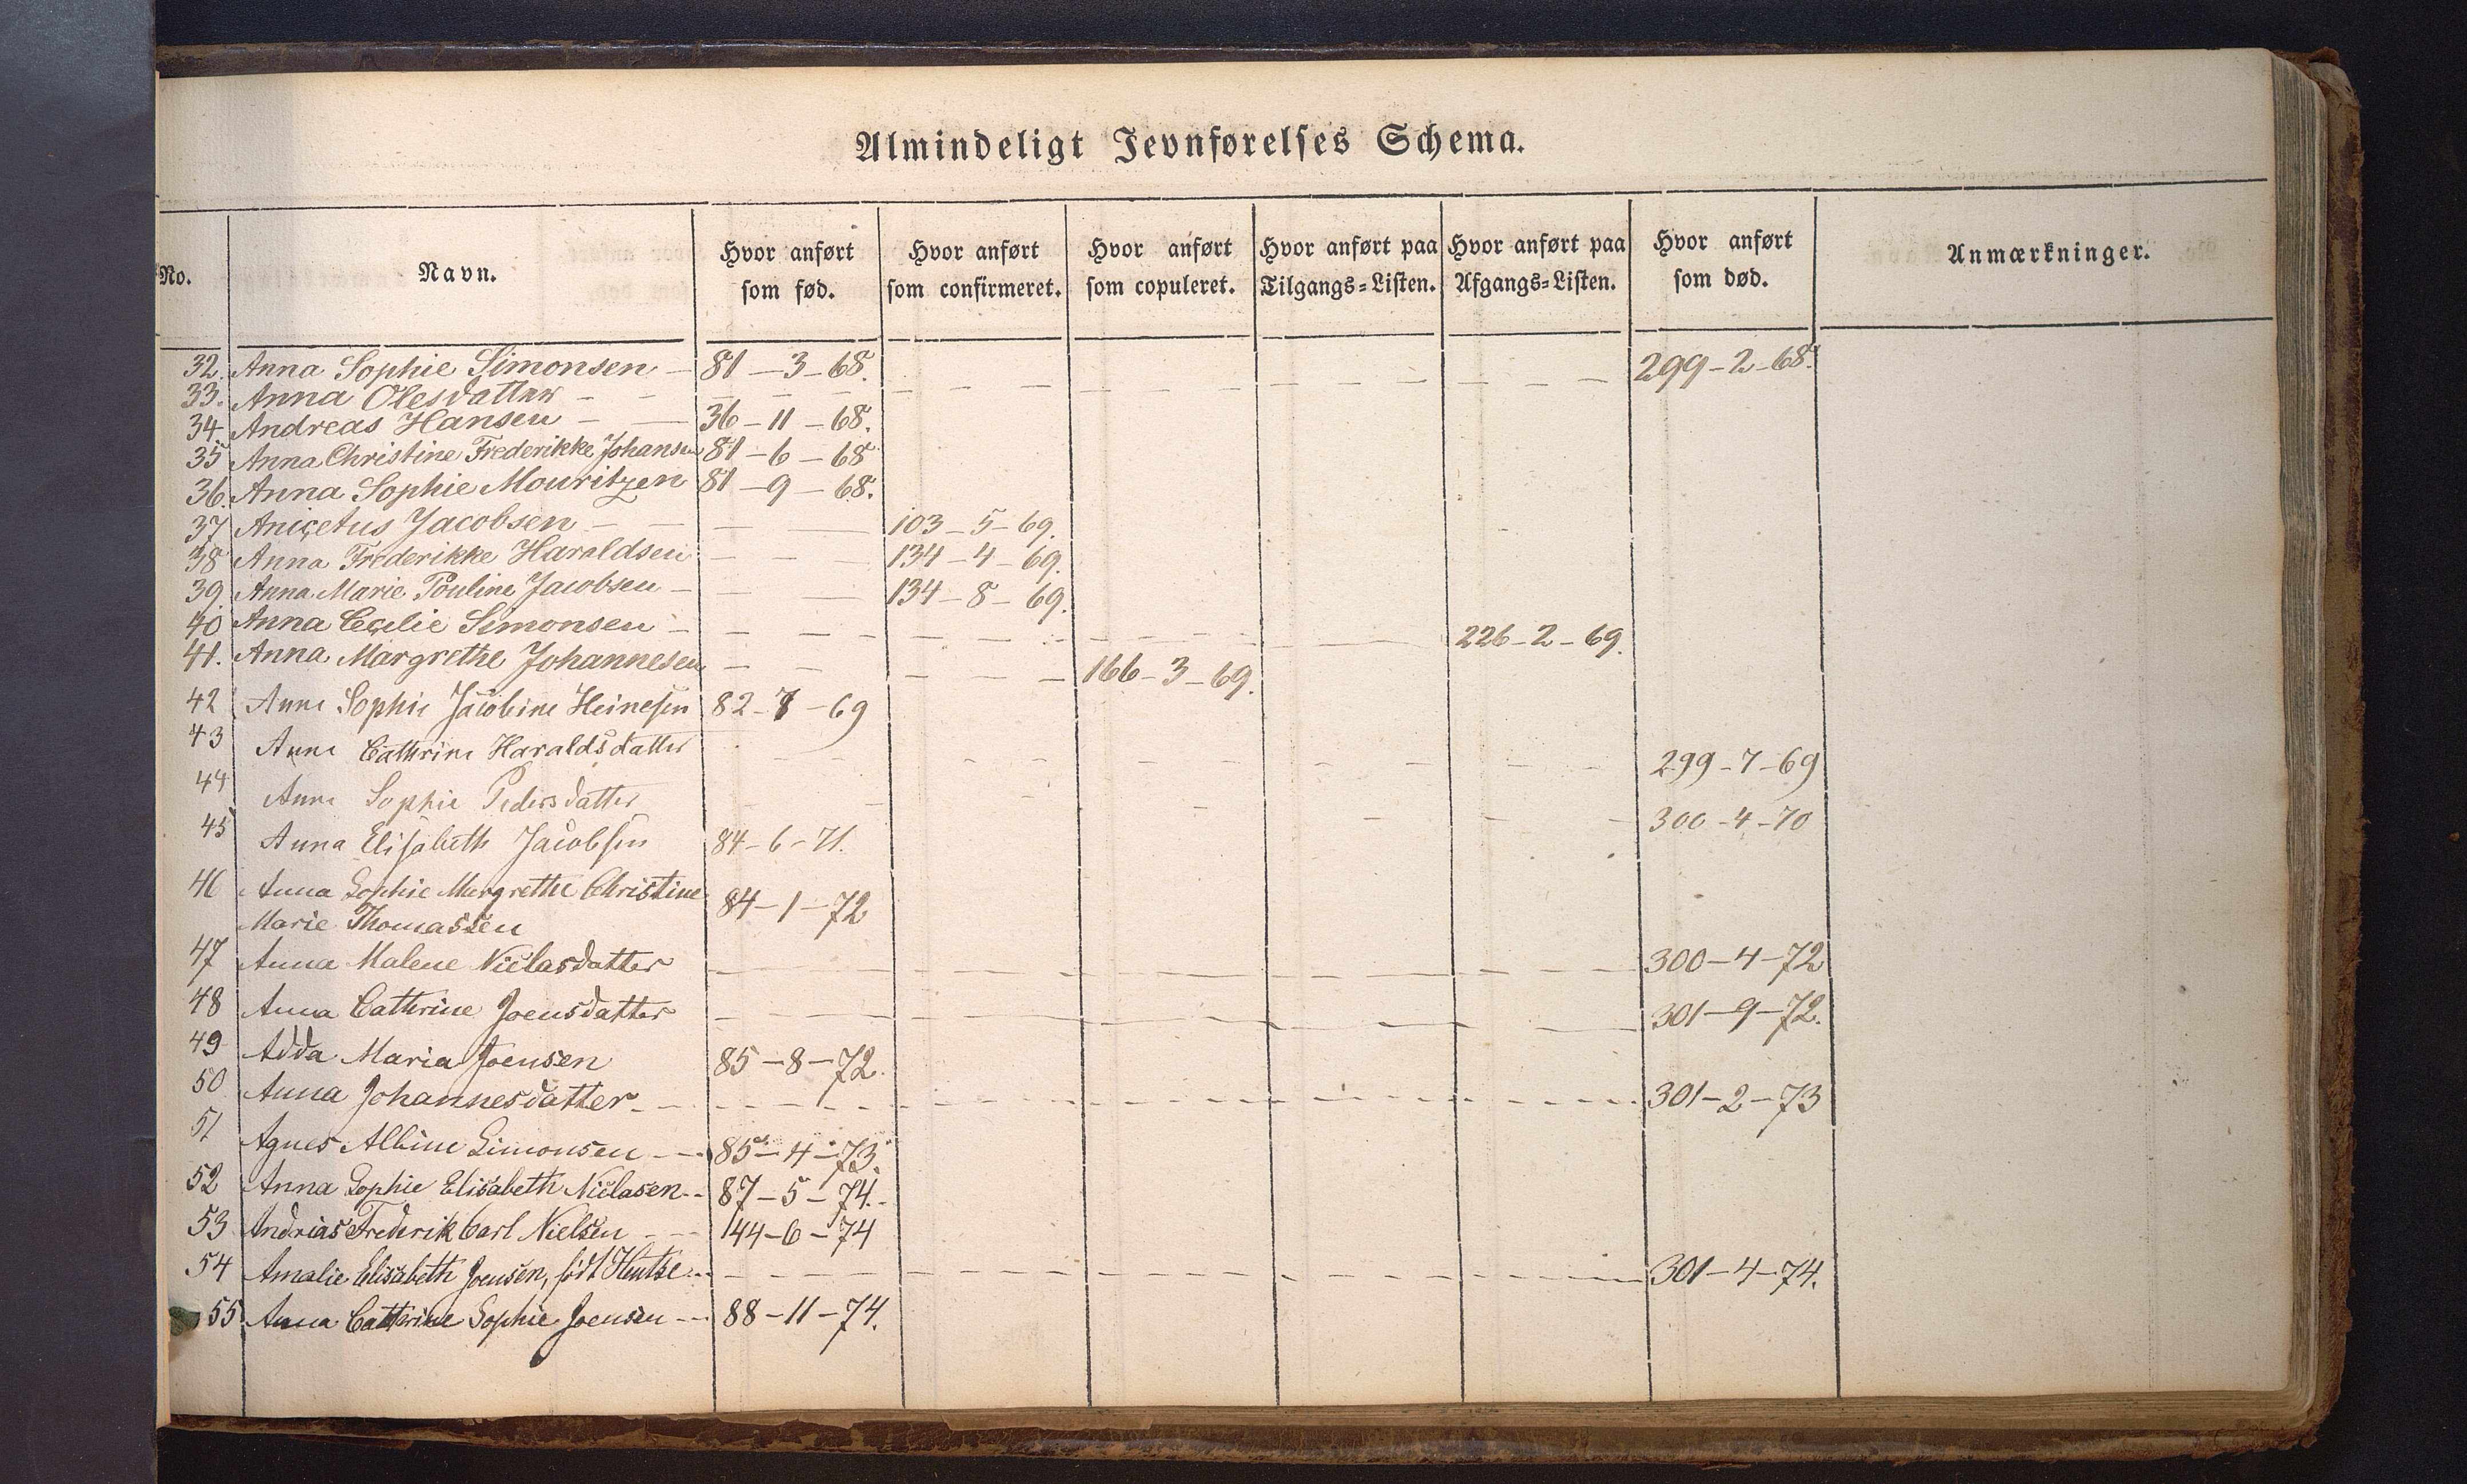 Almindeligt Jevnførelses Schema.
No. Navn. Hvor anført som fød. Hvor anført som confirmeret. Hvor anført som copuleret. Hvor anført paa Tilgangs=Listen. Hvor anført paa Afgangs=Listen. Hvor anført som død. Anmærkninger.
32. Anna Sophie Simonsen — 81 — 3 — 68. 299 — 2 — 68.
33. Anna Olesdatter
34. Andreas Hansen — 36 — 11 — 68.
35 Anna Christine Frederikke Johansen 81 — 6 — 68
36. Anna Sophie Mouritzen 81 — 9 — 68.
37 Anicetus Jacobsen — 103 — 5 — 69.
38 Anna Frederikke Haraldsen — 134 — 4 — 69.
39 Anna Marie Pouline Jacobsen — 134 — 8 — 69.
40 Anna Cecilie Simonsen — 226 — 2 — 69.
41. Anna Margrethe Johannesen — 166 — 3 — 69.
42 Anne Sophie Jacobine Heinesen 82 — 7 — 69
43 Anne Cathrine Haraldsdatter 299 — 7 — 69
44 Anne Sophie Pedersdatter 300 — 4 — 70
45 Anna Elisabeth Jacobsen 84 — 6 — 71.
46 Anna Sophie Margrethe Christine 84 — 1 — 72
Marie Thomassen
47 Anna Malene Niclasdatter — 300 — 4 — 72
48 Anna Cathrine Joensdatter — 301 — 9 — 72.
49 Adda Maria Joensen 85 — 8 — 72.
50 Anna Johannesdatter — 301 — 2 — 73
51 Agnes Albine Simonsen — 85 — 4 — 73.
52 Anna Sophie Elisabeth Niclasen — 87 — 5 — 74.
53 Andrias Frederik Carl Nielsen — 144 — 6 — 74
54 Amalie Elisabeth Joensen, født Hentze — 301 — 4 — 74.
55 Anna Cathrine Sophie Joensen — 88 — 11 — 74.